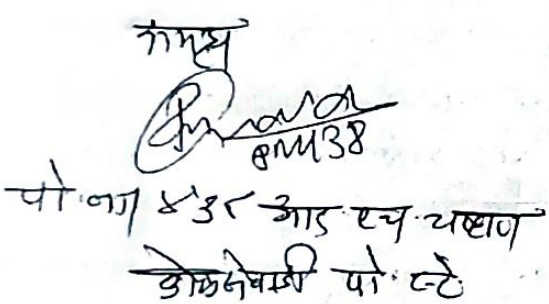 समक्ष
438
पो. ना ४३८ आर. एच. चव्हाण
कोळसेवाडी पो. स्टे